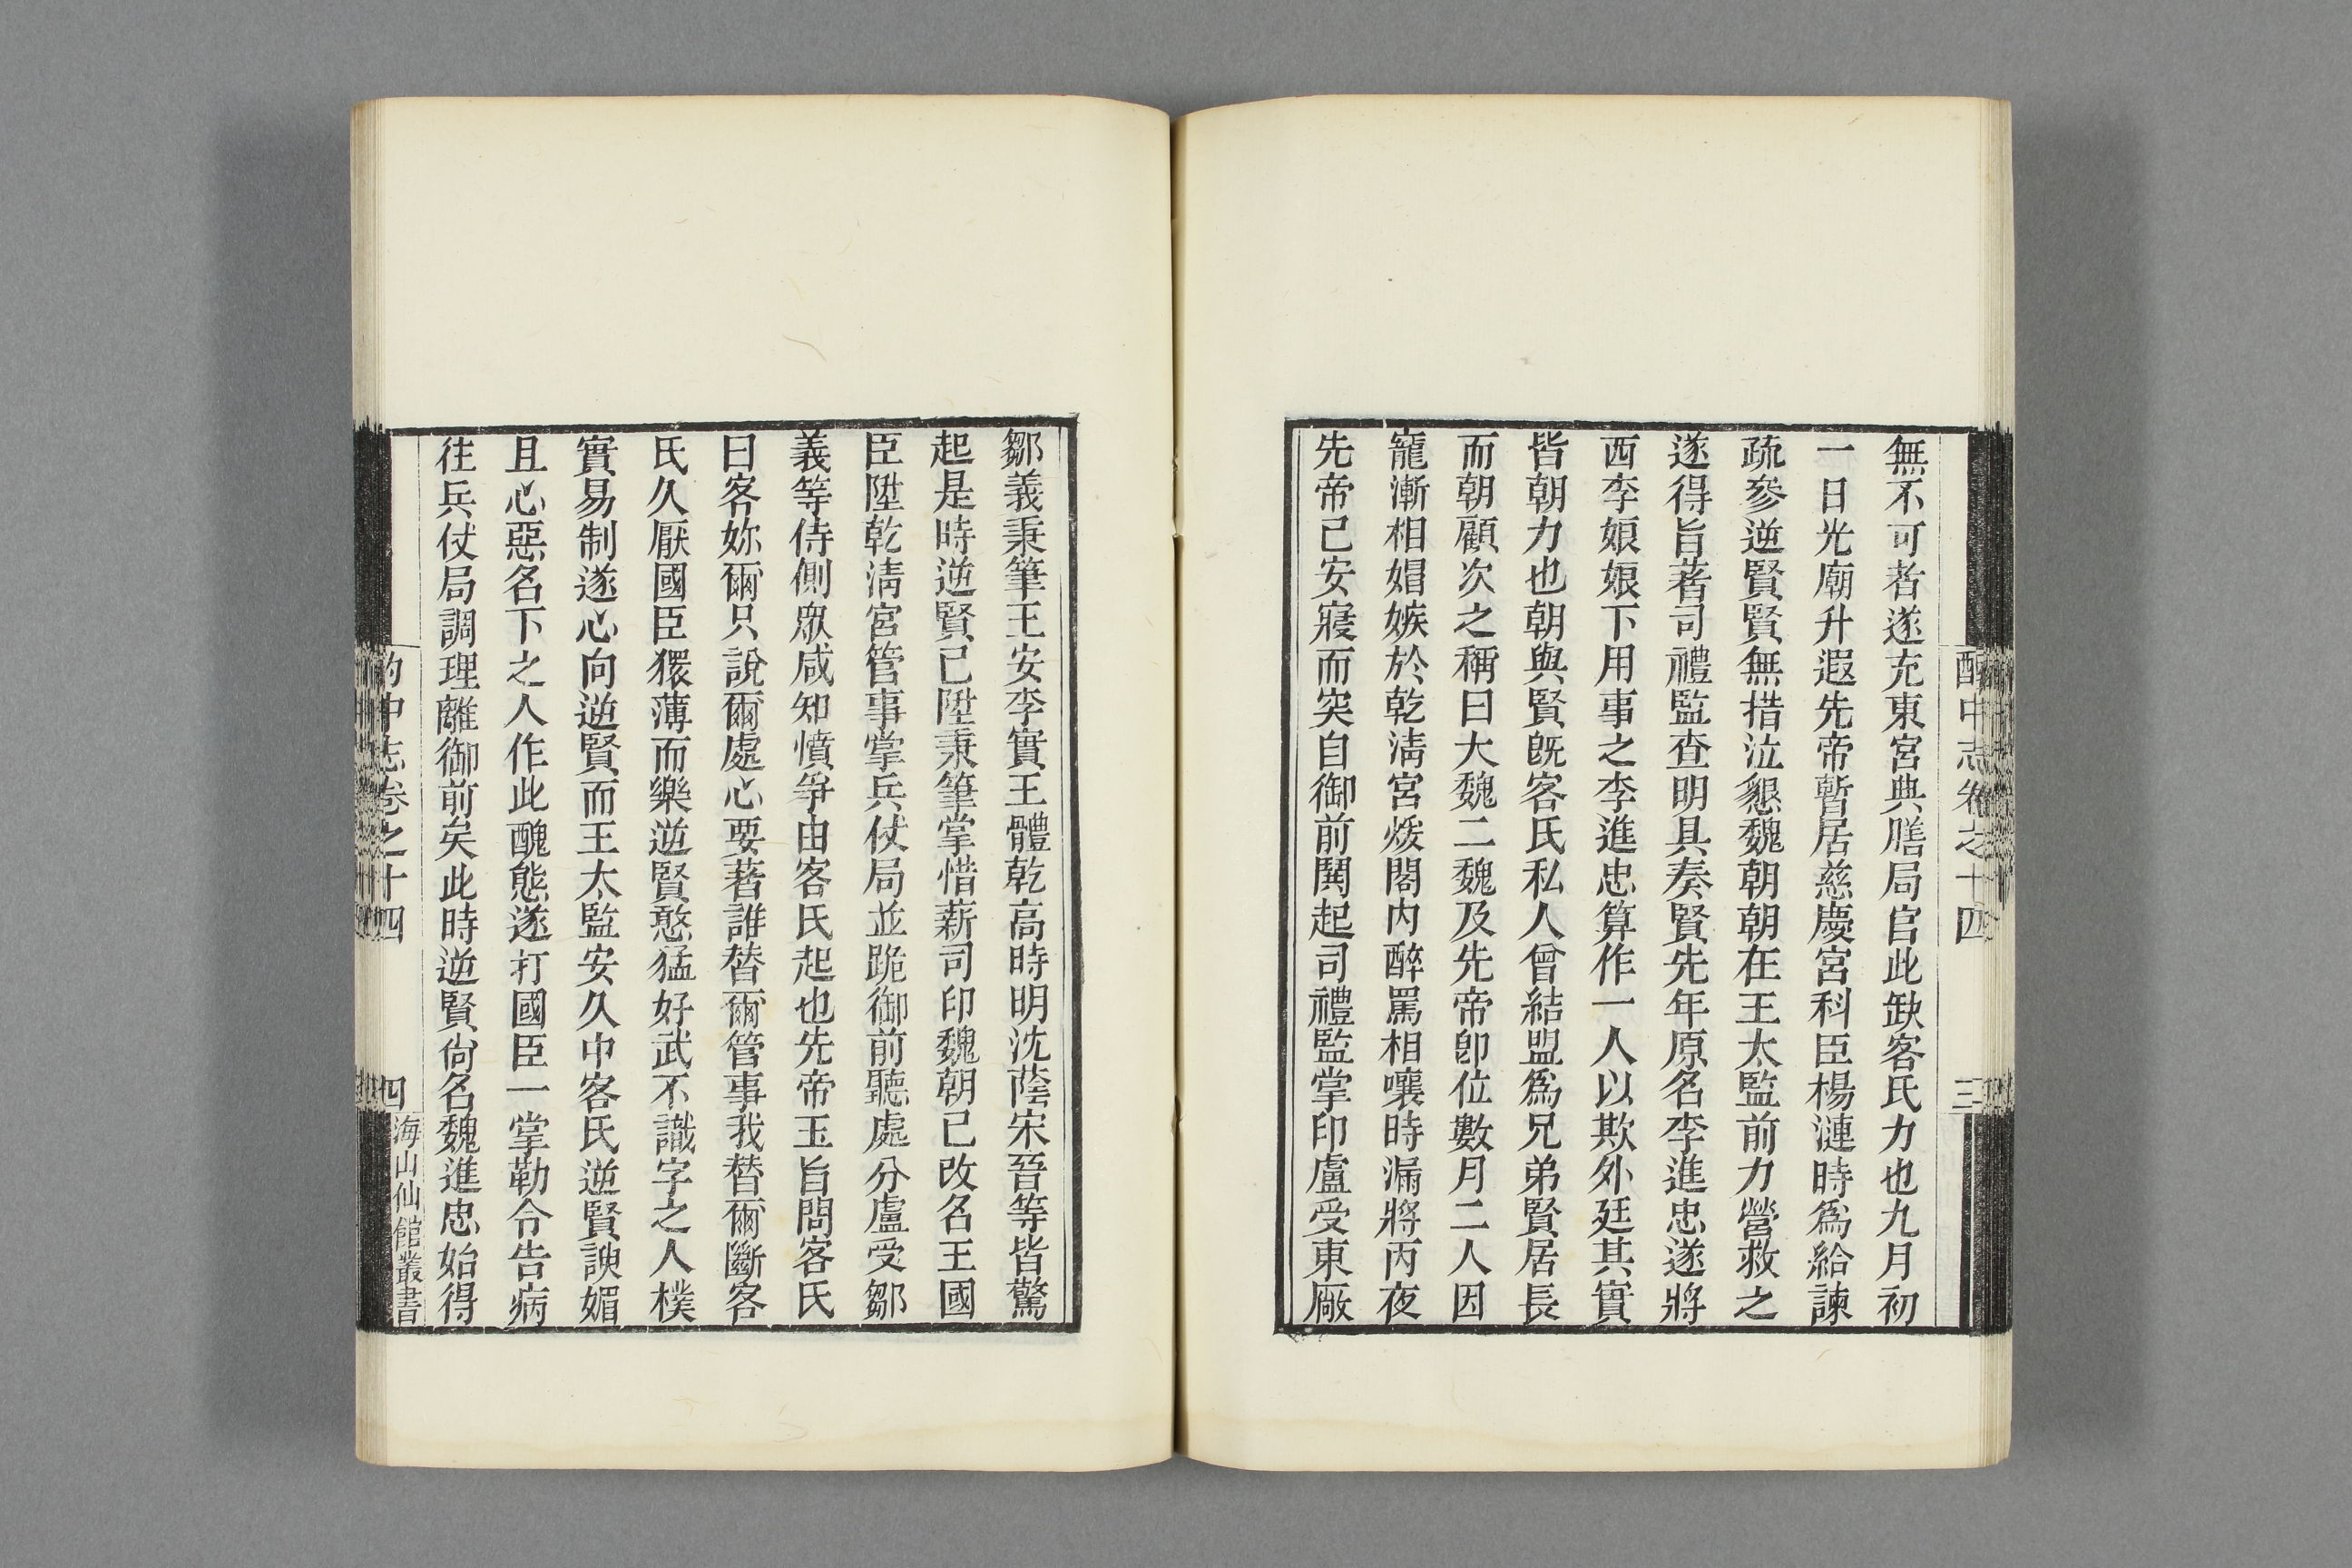 酌中志卷之十四
三
無不可者遂充東宮典膳局官此缺客氏力也九月初
一日光廟升遐先帝暫居慈慶宮科臣楊漣時爲給諫
疏參逆賢賢無措泣懇魏朝朝在王太監前力營救之
遂得旨著司禮監查明具奏賢先年原名李進忠遂將
西李娘娘下用事之李進忠算作一人以欺外廷其實
皆朝力也朝與賢旣客氏私人曾結盟爲兄弟賢居長
而朝顧次之稱曰大魏二魏及先帝卽位數月二人因
寵漸相媢嫉於乾淸宮煖閣內醉罵相嚷時漏將丙夜
先帝已安寢而突自御前鬨起司禮監掌印盧受東厰
鄒義秉筆王安李實王體乾高時明沈蔭宋晉等皆驚
起是時逆賢已陞秉筆掌惜薪司印魏朝已改名王國
臣陞乾淸宮管事掌兵仗局並跪御前聽處分盧受鄒
義等侍側眾咸知憤爭由客氏起也先帝玉旨問客氏
曰客妳爾只說爾處心要著誰替爾管事我替爾斷客
氏久厭國臣獧薄而樂逆賢憨猛好武不識字之人樸
實易制遂心向逆賢而王太監安久中客氏逆賢諛媚
且心惡名下之人作此醜態遂打國臣一掌勒令告病
往兵仗局調理離御前矣此時逆賢尙名魏進忠始得
酌中志卷之十四
四
海山仙館叢書